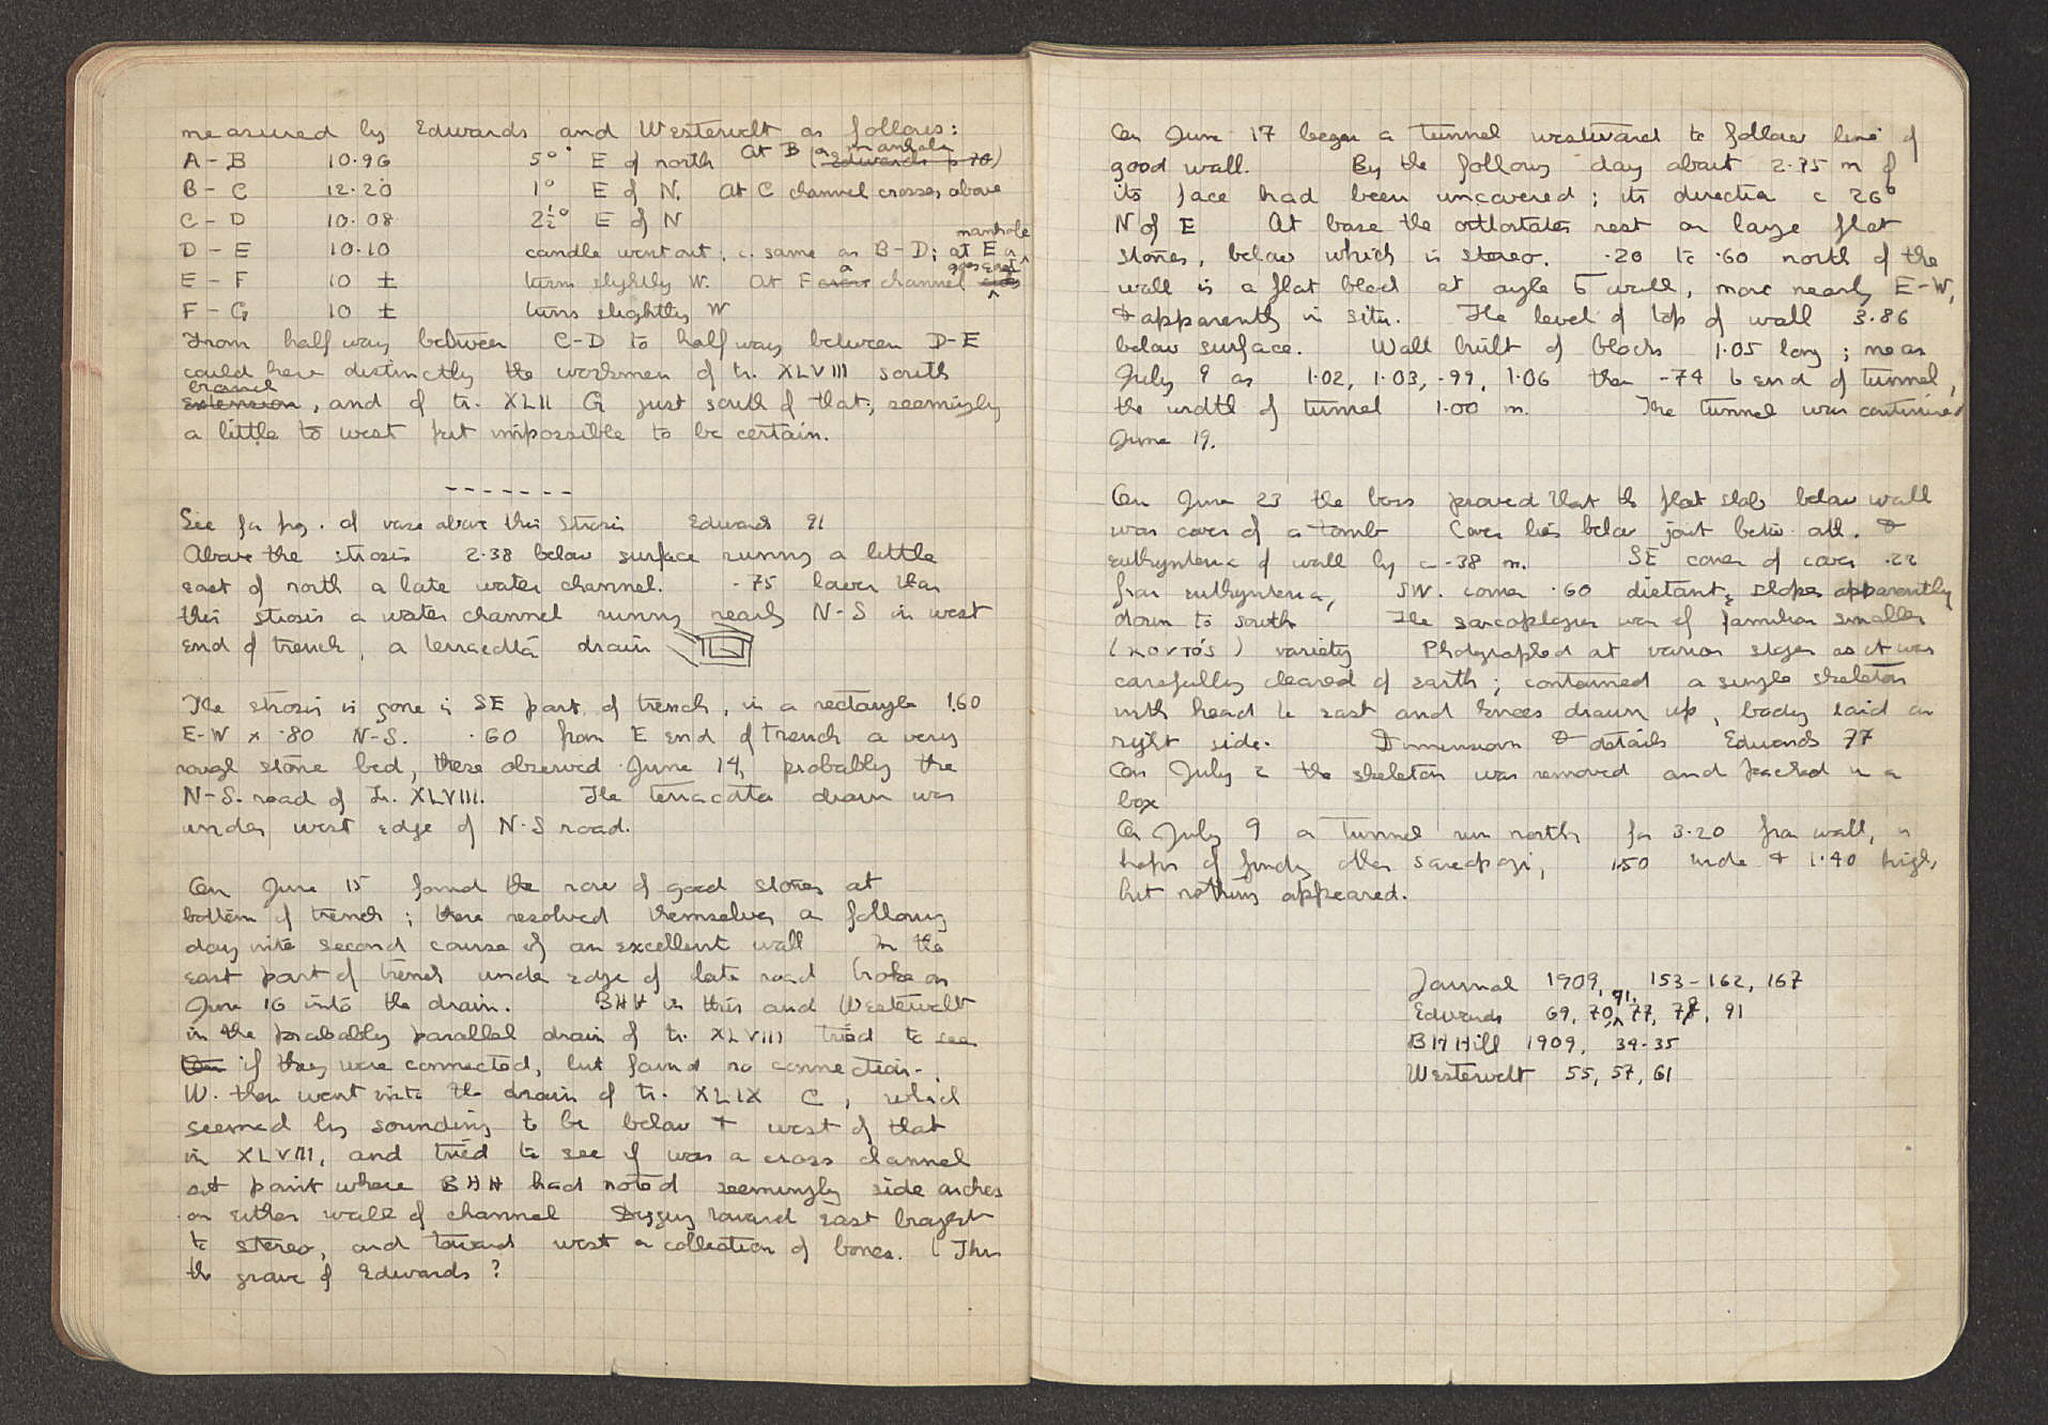 measured by Edwards and Westervelt as follows:
A - B 10.96 5° E of north At B (a manhole Edwards p 70)
B - C 12.20 1° E of N. At C channel crosses above
C - D 10.08 2½° E of N
D - E 10.10 candle went out, c. same as B-D; at E a manhole
E - F 10 ± turns slightly W. At F a channel goes east
F - G 10 ± turns slightly W
From half way between C-D to half way between D-E
could hear distinctly the workmen of tr. XLVIII south
branch extension, and of tr. XLII G just south of that, seemingly
a little to west but impossible to be certain.
-------
See for frg. of vase above this strosis Edwards 91
Above the strosis 2.38 below surface running a little
east of north a late water channel. .75 lower than
this strosis a water channel running nearly N-S in west
end of trench, a terracotta drain
The strosis is gone in SE part of trench, in a rectangle 1.60
E-W x .80 N-S. .60 from E end of trench a very
rough stone bed, there observed June 14, probably the
N-S. road of Tr. XLVIII. The terracotta drain was
under west edge of N-S road.
On June 15 found the row of good stones at
bottom of trench; these resolved themselves a following
day into second course of an excellent wall In the
east part of trench under edge of late road broke on
June 16 into the drain. BHH in this and Westervelt
in the probably parallel drain of tr. XLVIII tried to see
if they were connected, but found no connection.
W. then went into the drain of tr. XLIX C, which
seemed by sounding to be below + west of that
in XLVIII, and tried to see if was a cross channel
at point where BHH had noted seemingly side arches
on either wall of channel Digging toward east brought
to stereo, and toward west a collection of bones. (This
the grave of Edwards?
On June 17 began a tunnel westward to follow line of
good wall. By the following day about 2.75 m of
its face had been uncovered; its direction c 26°
N of E At base the orthostates rest on large flat
stones, below which is stereo. .20 to .60 north of the
wall is a flat block at angle to wall, more nearly E-W,
+ apparently in situ. The level of top of wall 3.86
below surface. Wall built of blocks 1.05 long; meas
July 9 as 1.02, 1.03, .99, 1.06 then .74 to end of tunnel,
the width of tunnel 1.00 m. The tunnel was continued
June 19.
On June 23 the boys proved that the flat slab below wall
was cover of a tomb Cover lies below joint betw. orth. +
euthynteria of wall by c .38 m. SE corner of cover .22
from euthynteria, SW. corner .60 distant, slopes apparently
down to south The sarcophagus was of familiar smaller
(κοντός) variety Photographed at various stages as it was
carefully cleared of earth; contained a single skeleton
with head to east and knees drawn up, body laid on
right side. Dimensions + details Edwards 77
On July 2 the skeleton was removed and packed in a
box
On July 9 a tunnel run north for 3.20 from wall, in
hopes of finding other sarcophagi, 1.50 wide + 1.40 high,
but nothing appeared.
Journal 1909, 153-162, 167
Edwards 69, 70, 91, 77, 78, 91
BHHill 1909, 34-35
Westervelt 55, 57, 61